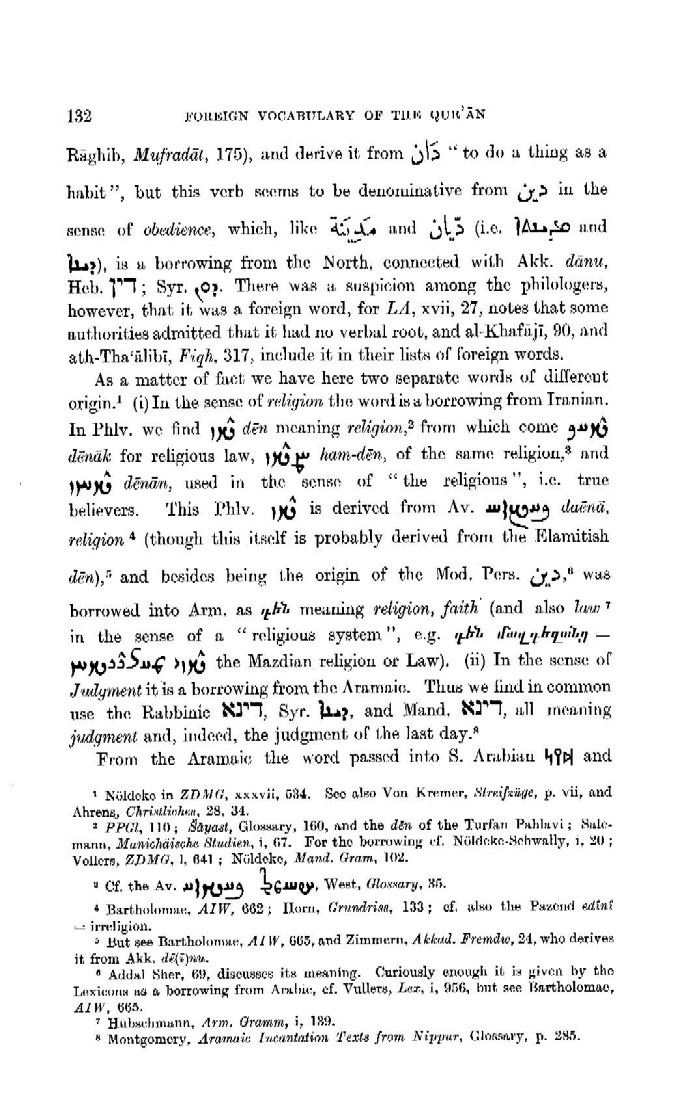 132 FOREIGN VOCABULARY OF THE QUR'ĀN
Rāghib, Mufradāt, 175), and derive it from دَانَ “ to do a thing as a
habit ”, but this verb seems to be denominative from دين in the
sense of obedience, which, like مَدِينَة and دَيَّان (i.e. ܡܕܝܢܬܐ and
ܕܝܢܐ), is a borrowing from the North, connected with Akk. dānu,
Heb. דין ; Syr. ܕܘܢ. There was a suspicion among the philologers,
however, that it was a foreign word, for LA, xvii, 27, notes that some
authorities admitted that it had no verbal root, and al-Khafājī, 90, and
ath-Tha‘ālibī, Fiqh, 317, include it in their lists of foreign words.
As a matter of fact we have here two separate words of different
origin.¹ (i) In the sense of religion the word is a borrowing from Iranian.
In Phlv. we find dēn meaning religion,² from which come
dēnāk for religious law, ham-dēn, of the same religion,³ and
dēnān, used in the sense of “ the religious ”, i.e. true
believers. This Phlv. is derived from Av. daēnā,
religion ⁴ (though this itself is probably derived from the Elamitish
dēn),⁵ and besides being the origin of the Mod. Pers. دين,⁶ was
borrowed into Arm. as դեն meaning religion, faith (and also law ⁷
in the sense of a “ religious system ”, e.g. դեն մազդեզանց —
the Mazdian religion or Law). (ii) In the sense of
Judgment it is a borrowing from the Aramaic. Thus we find in common
use the Rabbinic דינא, Syr. ܕܝܢܐ, and Mand. דינא, all meaning
judgment and, indeed, the judgment of the last day.⁸
From the Aramaic the word passed into S. Arabian 𐩵𐩺𐩬 and
¹ Nöldeke in ZDMG, xxxvii, 534. See also Von Kremer, Streifzüge, p. vii, and
Ahrens, Christliches, 28, 34.
² PPGl, 110 ; Šāyast, Glossary, 160, and the dēn of the Turfan Pahlavi ; Sale-
mann, Manichäische Studien, i, 67. For the borrowing cf. Nöldeke-Schwally, i, 20 ;
Vollers, ZDMG, l, 641 ; Nöldeke, Mand. Gram, 102.
³ Cf. the Av. West, Glossary, 35.
⁴ Bartholomae, AIW, 662 ; Horn, Grundriss, 133 ; cf. also the Pazend edīnī
= irreligion.
⁵ But see Bartholomae, AIW, 665, and Zimmern, Akkad. Fremdw, 24, who derives
it from Akk. dē(ī)nu.
⁶ Addai Sher, 69, discusses its meaning. Curiously enough it is given by the
Lexicons as a borrowing from Arabic, cf. Vullers, Lex, i, 956, but see Bartholomae,
AIW, 665.
⁷ Hübschmann, Arm. Gramm, i, 139.
⁸ Montgomery, Aramaic Incantation Texts from Nippur, Glossary, p. 285.